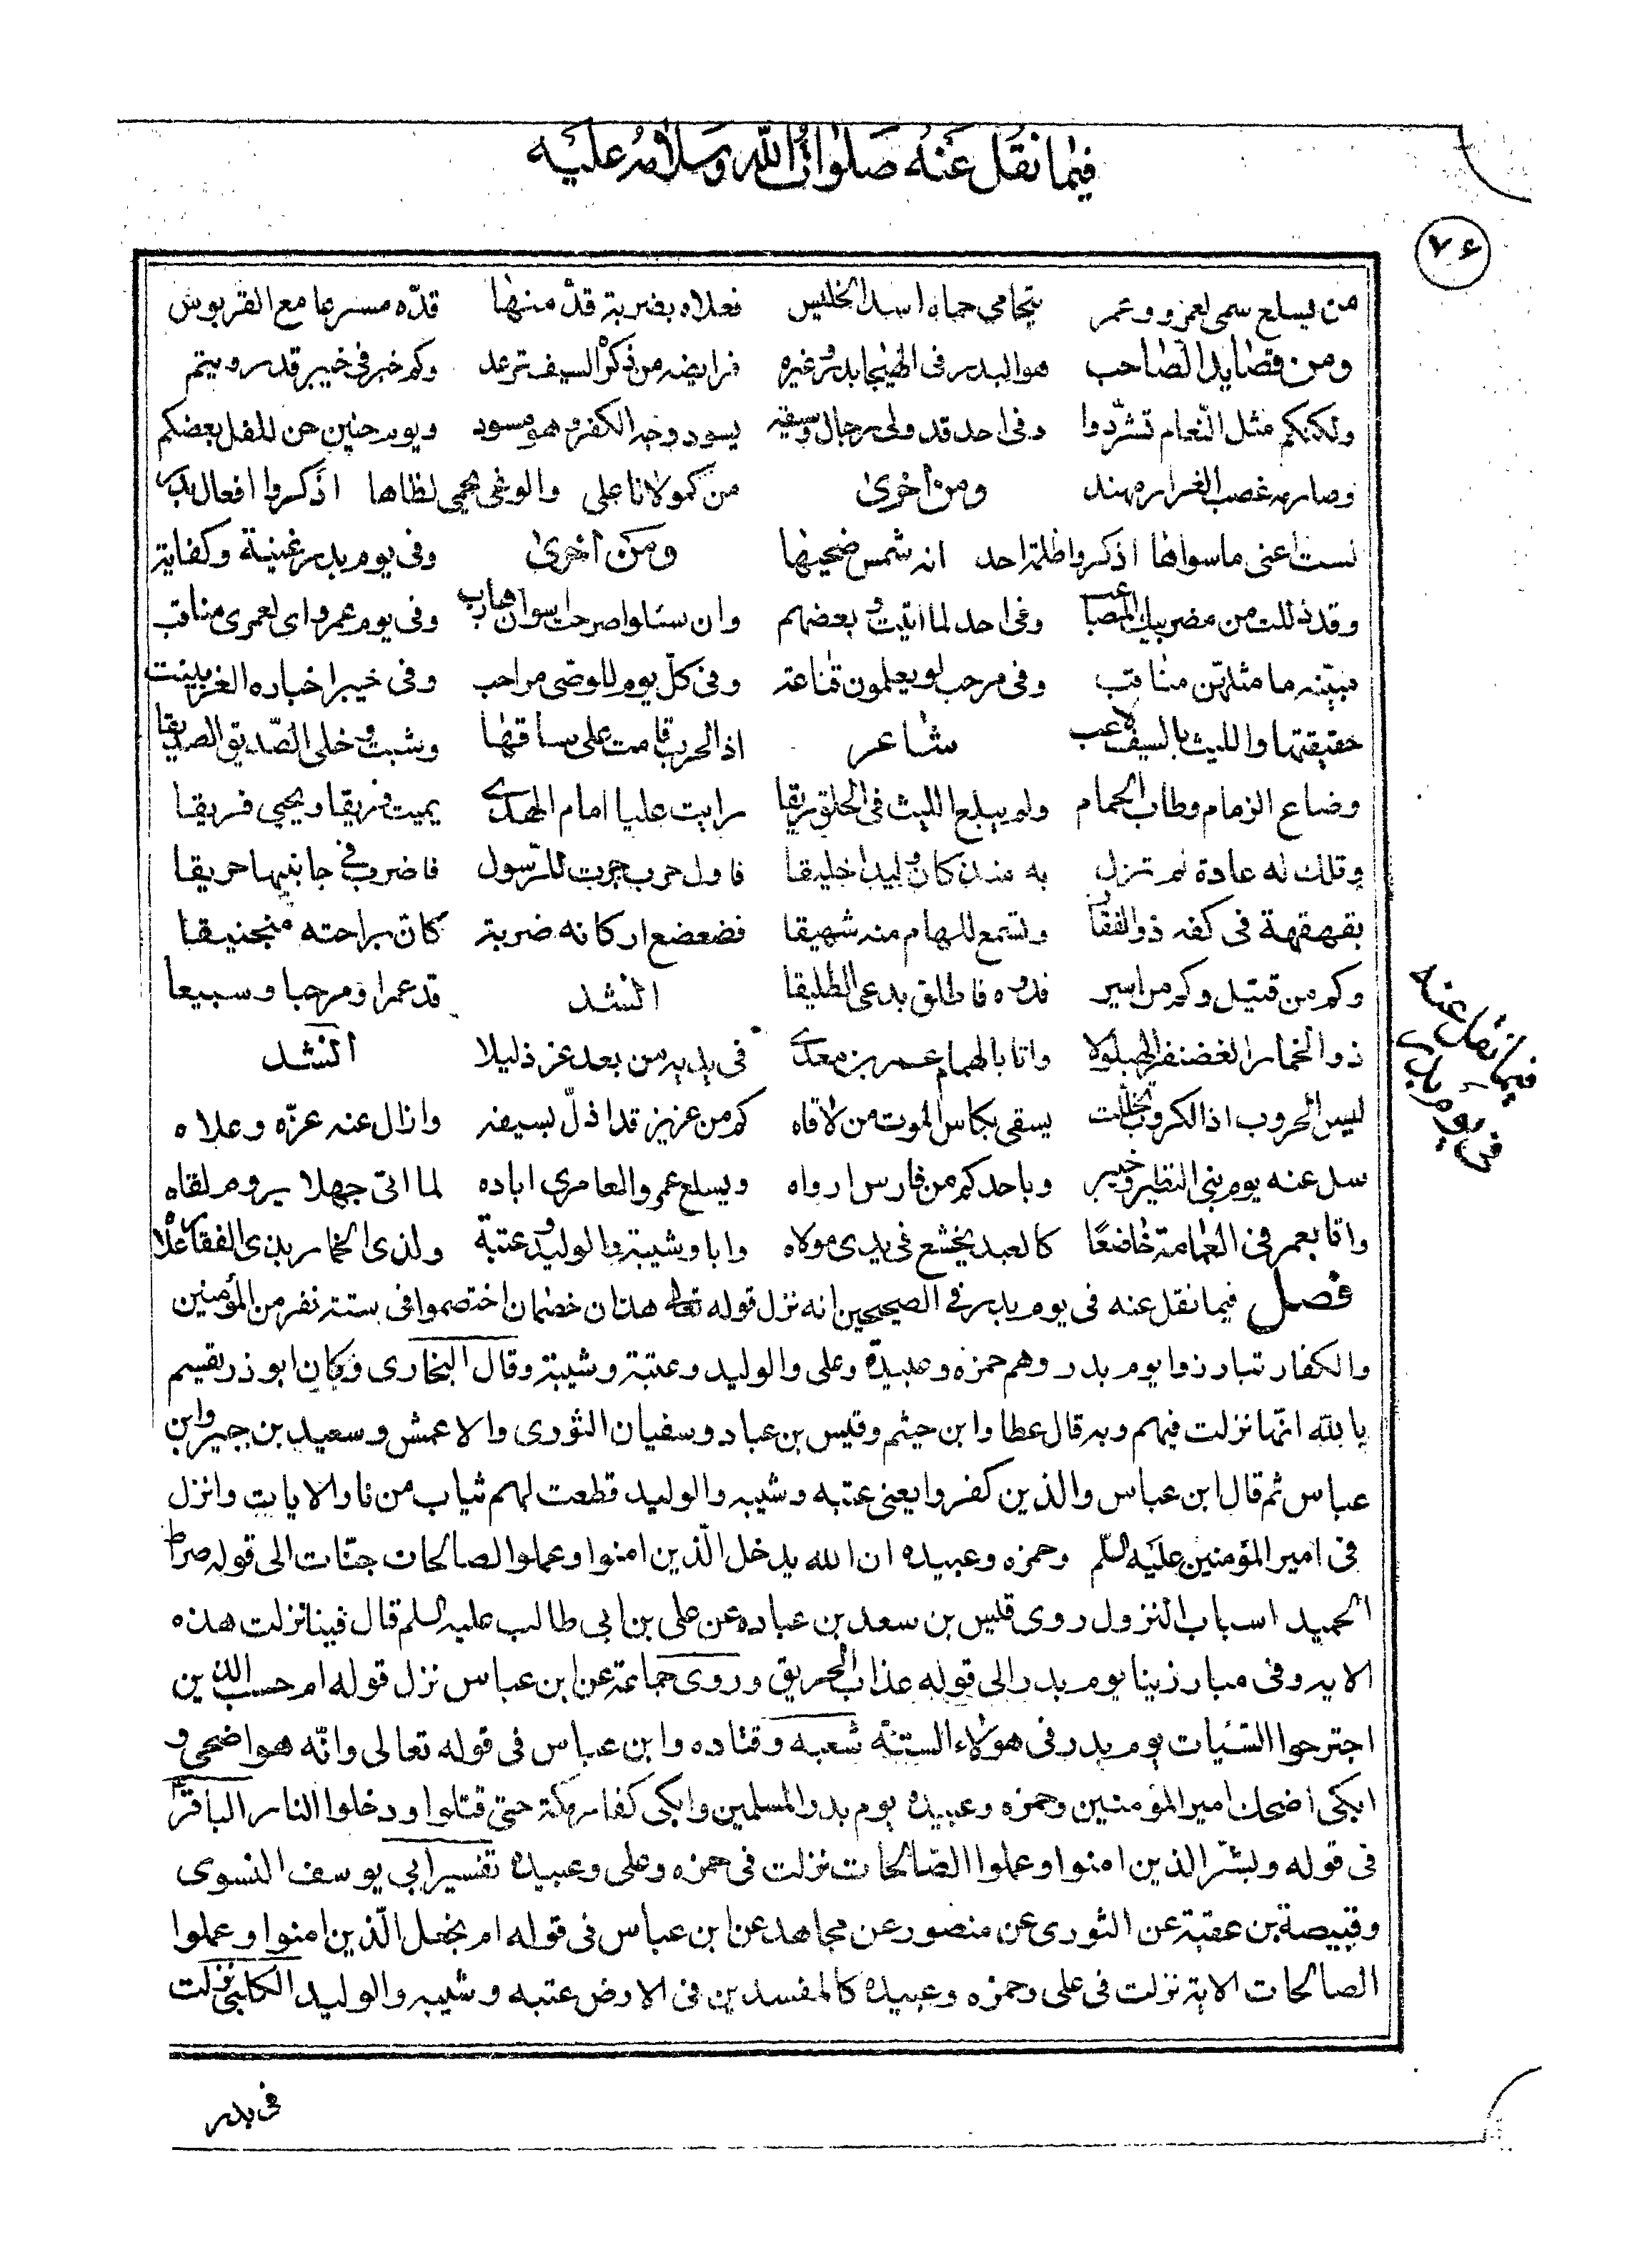 فيما نقل عنه صلوات الله وسلامه عليه
٧٤
من بسلع سمى لعمرو وعمر يتحامى حماه اسد الخليس فعلاه بضربة قدّ منها قدّه مسرعا مع القربوس
ومن قصايد الصاحب هو البدر فى الهيجا بدر وغيره فرايضه من ذكر السيف ترعد وكم خبر فى خيبر قد رويتم
ولكنكم مثل النّعام تشرّدوا وفى احد قد ولى رجال وسيفه يسود وجه الكفر وهو مسود ويوم حنين حن للغل بعضكم
وصارمه غضب الغرار مهند ومن أخرى من كمولانا على والوغى تحمى لظاها اذكروا افعال بدر
لست اعنى ما سواها اذكروا ظلمة احد انه شمس ضحيها ومن أخرى وفى يوم بدر غنية وكفاية
وقد ذللت من مضربيك المصاعب وفى احد لما اتيت وبعضهم وان سئلوا صرحت اسوان هارب وفى يوم عمرو اى لعمرى مناقب
مبيّنه ما مثلهن مناقب وفى مرحب لو يعلمون قناعة وفى كلّ يوم للوصى مراحب وفى خيبر اخباره الغر بينت
حقيقتها والليث بالسيف لاعب شاعر اذ الحرب قامت على ساقها وشبت وخلى الصّديق الصديقا
وضاع الزمام وطاب الحمام ولم يبلع الليث فى الحلق ريقا رايت عليا امام الهدى يميت فريقا ويحيى فريقا
وتلك له عادة لم تزل به منذ كان وليدا خليقا فاول حرب جرت للرّسول فاضرب فى جانبيها حريقا
بقهقهة فى كفه ذو الفقار وتسمع للهام منه شهيقا فضعضع اركانه ضربة كان براحته منجنيقا
وكم من قتيل وكم من اسير فدوه فاطلق يدعى الطليقا انشد قد عمرا ومرحبا وسبيعا
ذو الخمار الغضنفر البهلولا واتا بالهمام عمر بن معدى فى يديه من بعد عز ذليلا انشد
ليس الحروب اذا الكروب تجللت يسقى بكاس الموت من لاقاه كم من عزيز قد اذلّ بسيفه وازال عنه عزّه وعلاه
سل عنه يوم بنى النظير وخيبر وباحد كم من فارس ارواه وبسلع عمرو العامرى اباده لما اتى جهلا يروم لقاه
واتا بعمرو فى العمامة خاضعًا كالعبد يخشع فى يدى مولاه وابا وشيبة والوليد وعتبة ولذى الخمار بذى الفقار علاه
فصل فيما نقل عنه فى يوم بدر فى الصحيحين انه نزل قوله تعالى هذان خصمان اختصموا فى ستة نفر من المؤمنين
والكفار تبارزوا يوم بدر وهم حمزه وعبيدة وعلى والوليد وعتبة وشيبة وقال البخارى وكان ابو ذر يقسم
بالله انّها نزلت فيهم وبه قال عطا وابن خيثم وقيس بن عباد وسفيان الثورى والاعمش وسعيد بن جبير وابن
عباس ثم قال ابن عباس والذين كفروا يعنى عتبه وشيبه والوليد قطعت لهم ثياب من نار الايات وانزل
فى امير المؤمنين عليه السلم وحمزه وعبيده ان الله يدخل الّذين امنوا وعملوا الصالحات جنّات الى قوله صراط
الحميد اسباب النزول روى قيس بن سعد بن عباده عن على بن ابى طالب عليه السلم قال فينا نزلت هذه
الايه وفى مبارزينا يوم بدر الى قوله عذاب الحريق وروى جماعة عن ابن عباس نزل قوله ام حسب الذين
اجترحوا السّيّات يوم بدر فى هولاء الستة شعبه وقتاده وابن عباس فى قوله تعالى وانّه هو اضحى و
ابكى اضحك امير المؤمنين وحمزه وعبيده يوم بدر المسلمين وابكى كفار مكة حتى قتلوا ودخلوا النار الباقر
فى قوله وبشّر الذين امنوا وعملوا الصّالحات نزلت فى حمزه وعلى وعبيده تفسير ابى يوسف النسوى
وقبيصة بن عقبة عن الثورى عن منصور عن مجاهد عن ابن عباس فى قوله ام نجعل الّذين امنوا وعملوا
الصالحات الاية نزلت فى على وحمزه وعبيده كالمفسدين فى الارض عتبه وشيبه والوليد الكلبى نزلت
فيما نقل عنه
فى يوم بدر
فى بدر